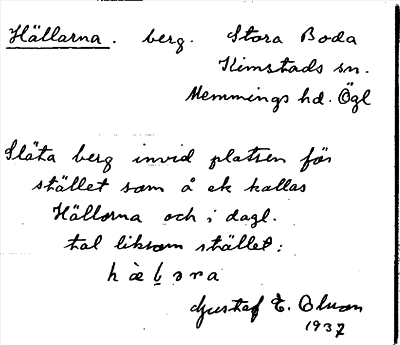 Hällarna. berg. Stora Boda
Kimstads sn.
Memmings hd. Ögl
Släta berg invid platsen för
stället som å ek kallas
Hällorna och i dagl.
tal liksom stället:
Gustaf E.
1937